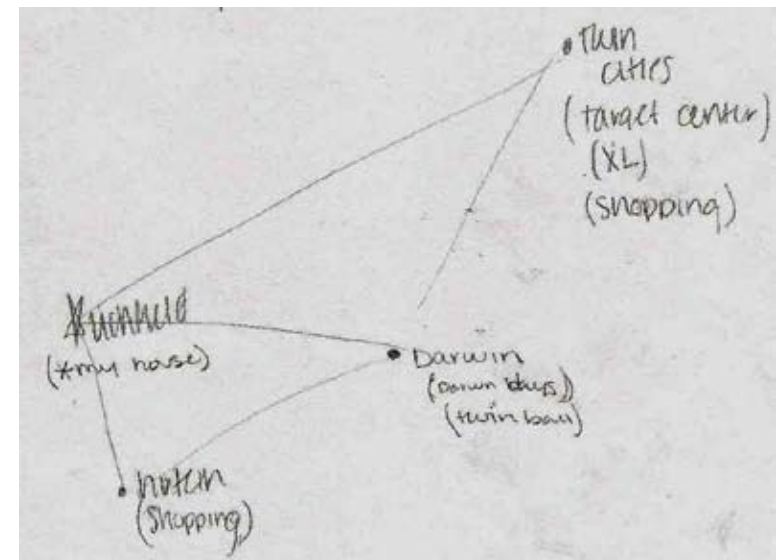 Twin
cities
(target center)
(XL)
(shopping)
(*my house)
Darwin
(twin ball)
hutch
(shopping)